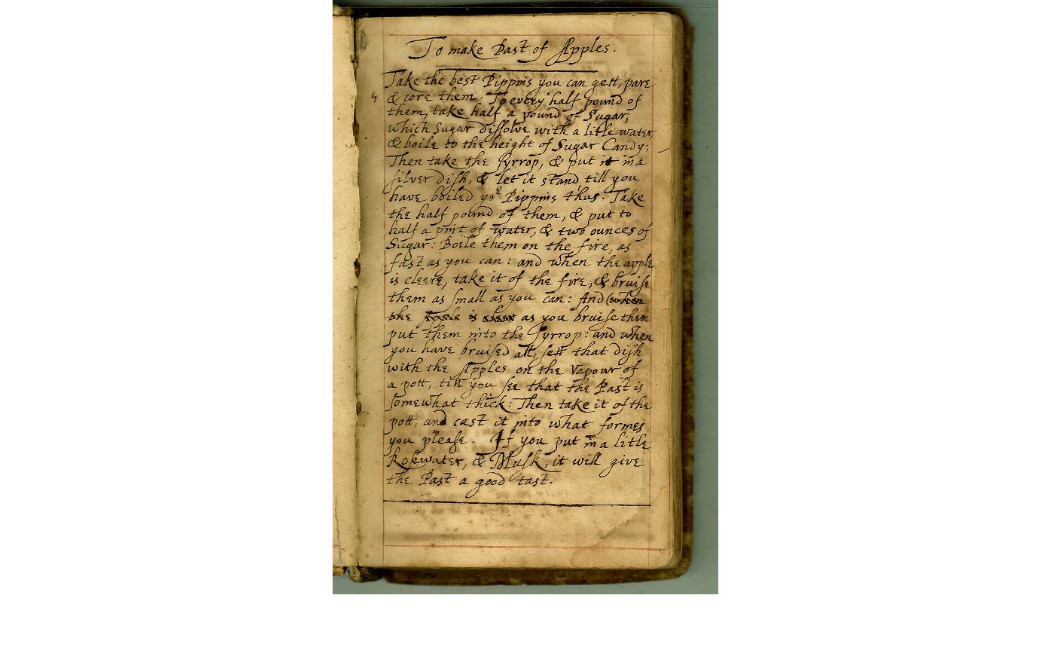 To make Past of Apples.
Take the best Pippins you can gett, pare
4
& core them: To every half pound of
them, take half a pound of Sugar,
which Sugar dissolve with a litle water,
& boile to the height of Sugar Candy:
Then take the syrrop, & put it in a
silver dish, & let it stand till you
have boiled yor Pippins thus: Take
the half pound of them, & put to
half a pint of water, & two ounces of
Sugar: Boile them on the fire, as
fast as you can: and when the apple
is cleere, take it of the fire, & bruise
them as small as you can: And when
the Apple is cleer as you bruise them
put them into the syrrop: and when
you have bruised all, sett that dish
with the Apples on the Vapour of
a pott, till you see that the Past is
somewhat thick: Then take it of the
pott, and cast it into what formes
you please. If you put in a litle
Rosewater, & Musk, it will give
the Past a good tast.